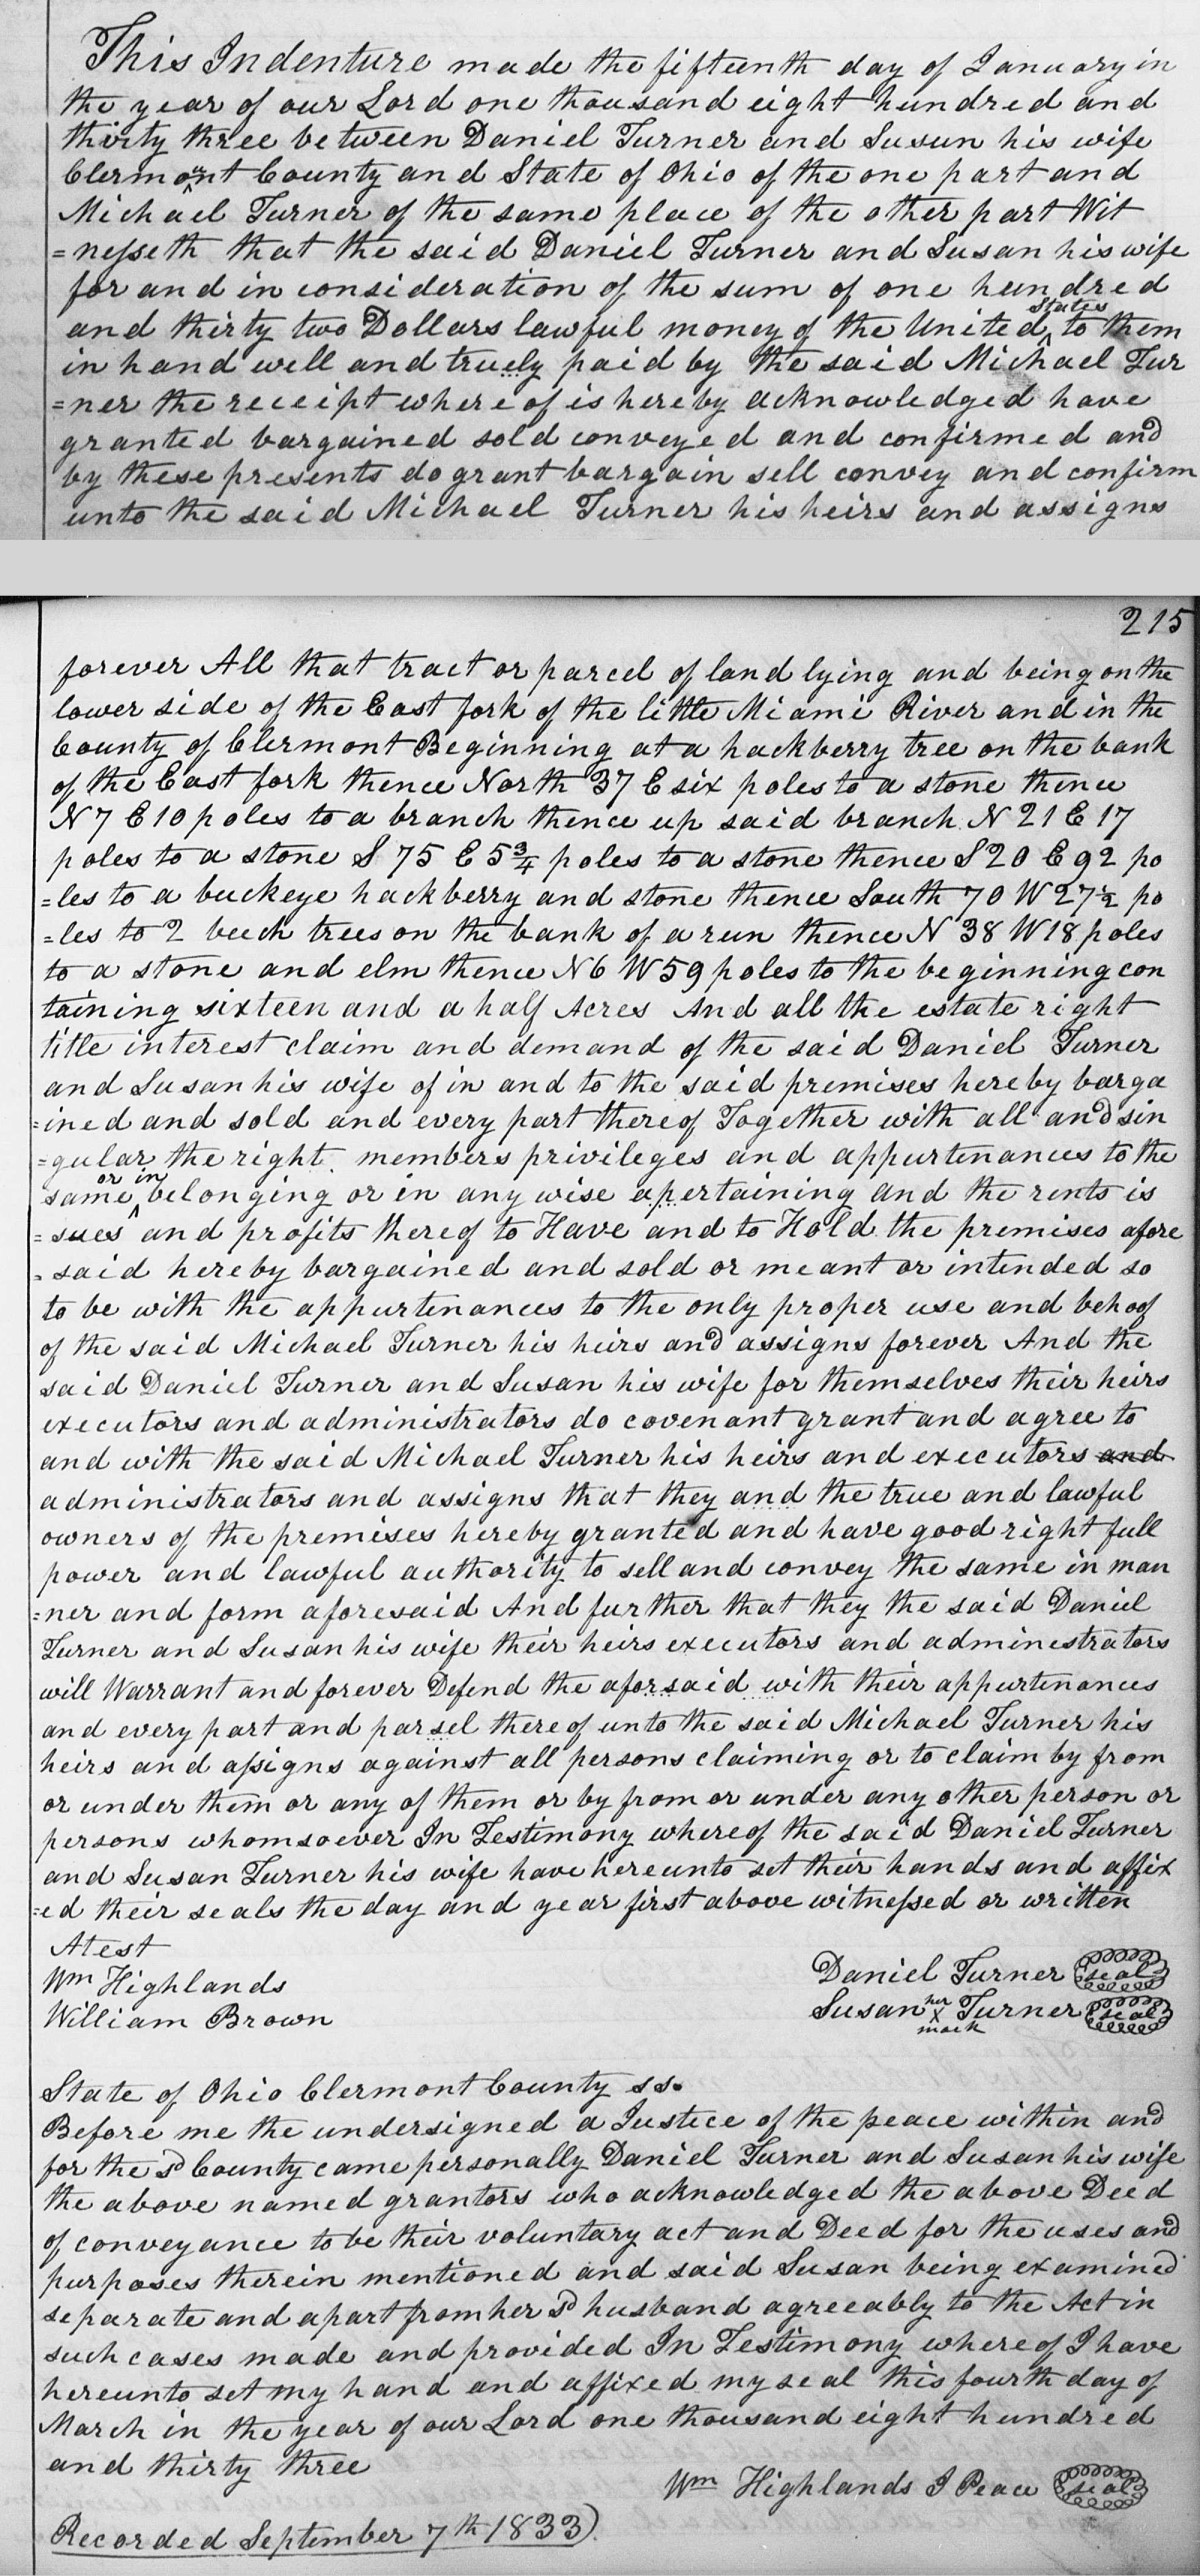 This Indenture made the fifteenth day of January in
the year of our Lord one thousand eight hundred and
thirty three between Daniel Turner and Susun his wife
Clermount County and State of Ohio of the one part and
Michael Turner of the same place of the other part Wit
=nesseth that the said Daniel Turner and Susan his wife
for and in consideration of the sum of one hundred
and thirty two Dollars lawful money of the United States to them
in hand well and truely paid by the said Michael Tur
=ner the receipt where of is hereby acknowledged have
granted bargained sold conveyed and confirmed and
by these presents do grant bargain sell convey and confirm
unto the said Michael Turner his heirs and assigns
215
forever All that tract or parcel of land lying and being on the
lower side of the East fork of the little Miami River and in the
County of Clermont Beginning at a hackberry tree on the bank
of the East fork thence North 37 E six poles to a stone thence
N 7 E 10 poles to a branch thence up said branch N 21 E 17
poles to a stone S 75 E 5 3/4 poles to a stone thence S 20 E 92 po
=les to a buckeye hackberry and stone thence South 70 W 27 1/2 po
=les to 2 beech trees on the bank of a run thence N 38 W 18 poles
to a stone and elm thence N 6 W 59 poles to the beginning con
taining sixteen and a half Acres And all the estate right
title interest claim and demand of the said Daniel Turner
and Susan his wife of in and to the said premises hereby barga
=ined and sold and every part thereof Together with all and sin
=gular the right members privileges and appurtenances to the
same or in belonging or in any wise apertaining and the rents is
=sues and profits thereof to Have and to Hold the premises afore
=said hereby bargained and sold or meant or intended so
to be with the appurtenances to the only proper use and behoof
of the said Michael Turner his heirs and assigns forever And the
said Daniel Turner and Susan his wife for themselves their heirs
executors and administrators do covenant grant and agree to
and with the said Michael Turner his heirs and executors and
administrators and assigns that they and the true and lawful
owners of the premises hereby granted and have good right full
power and lawful authority to sell and convey the same in man
=ner and form aforesaid And further that they the said Daniel
Turner and Susan his wife their heirs executors and adminestrators
will Warrant and forever Defend the aforsaid with their appurtenances
and every part and parsel thereof unto the said Michael Turner his
heirs and assigns against all persons claiming or to claim by from
or under them or any of them or by from or under any other person or
persons whomsoever In Testimony whereof the said Daniel Turner
and Susan Turner his wife have hereunto set their hands and affix
=ed their seals the day and year first above witnessed or written
Atest
Wm Highlands
William Brown
Daniel Turner seal
Susan her x mark Turner seal
State of Ohio Clermont County ss.
Before me the undersigned a Justece of the peace within and
for the sd County came personally Daniel Turner and Susan his wife
the above named grantors who acknowledged the above Deed
of conveyance to be their voluntary act and Deed for the uses and
purposes therein mentioned and said Susan being examined
separate and apart from her sd husband agreeably to the Act in
such cases made and provided In Testimony whereof I have
hereunto set my hand and affixed my seal this fourth day of
March in the year of our Lord one thousand eight hundred
and thirty three
Wm Highlands J Peace seal
Recorded September 7th 1833)